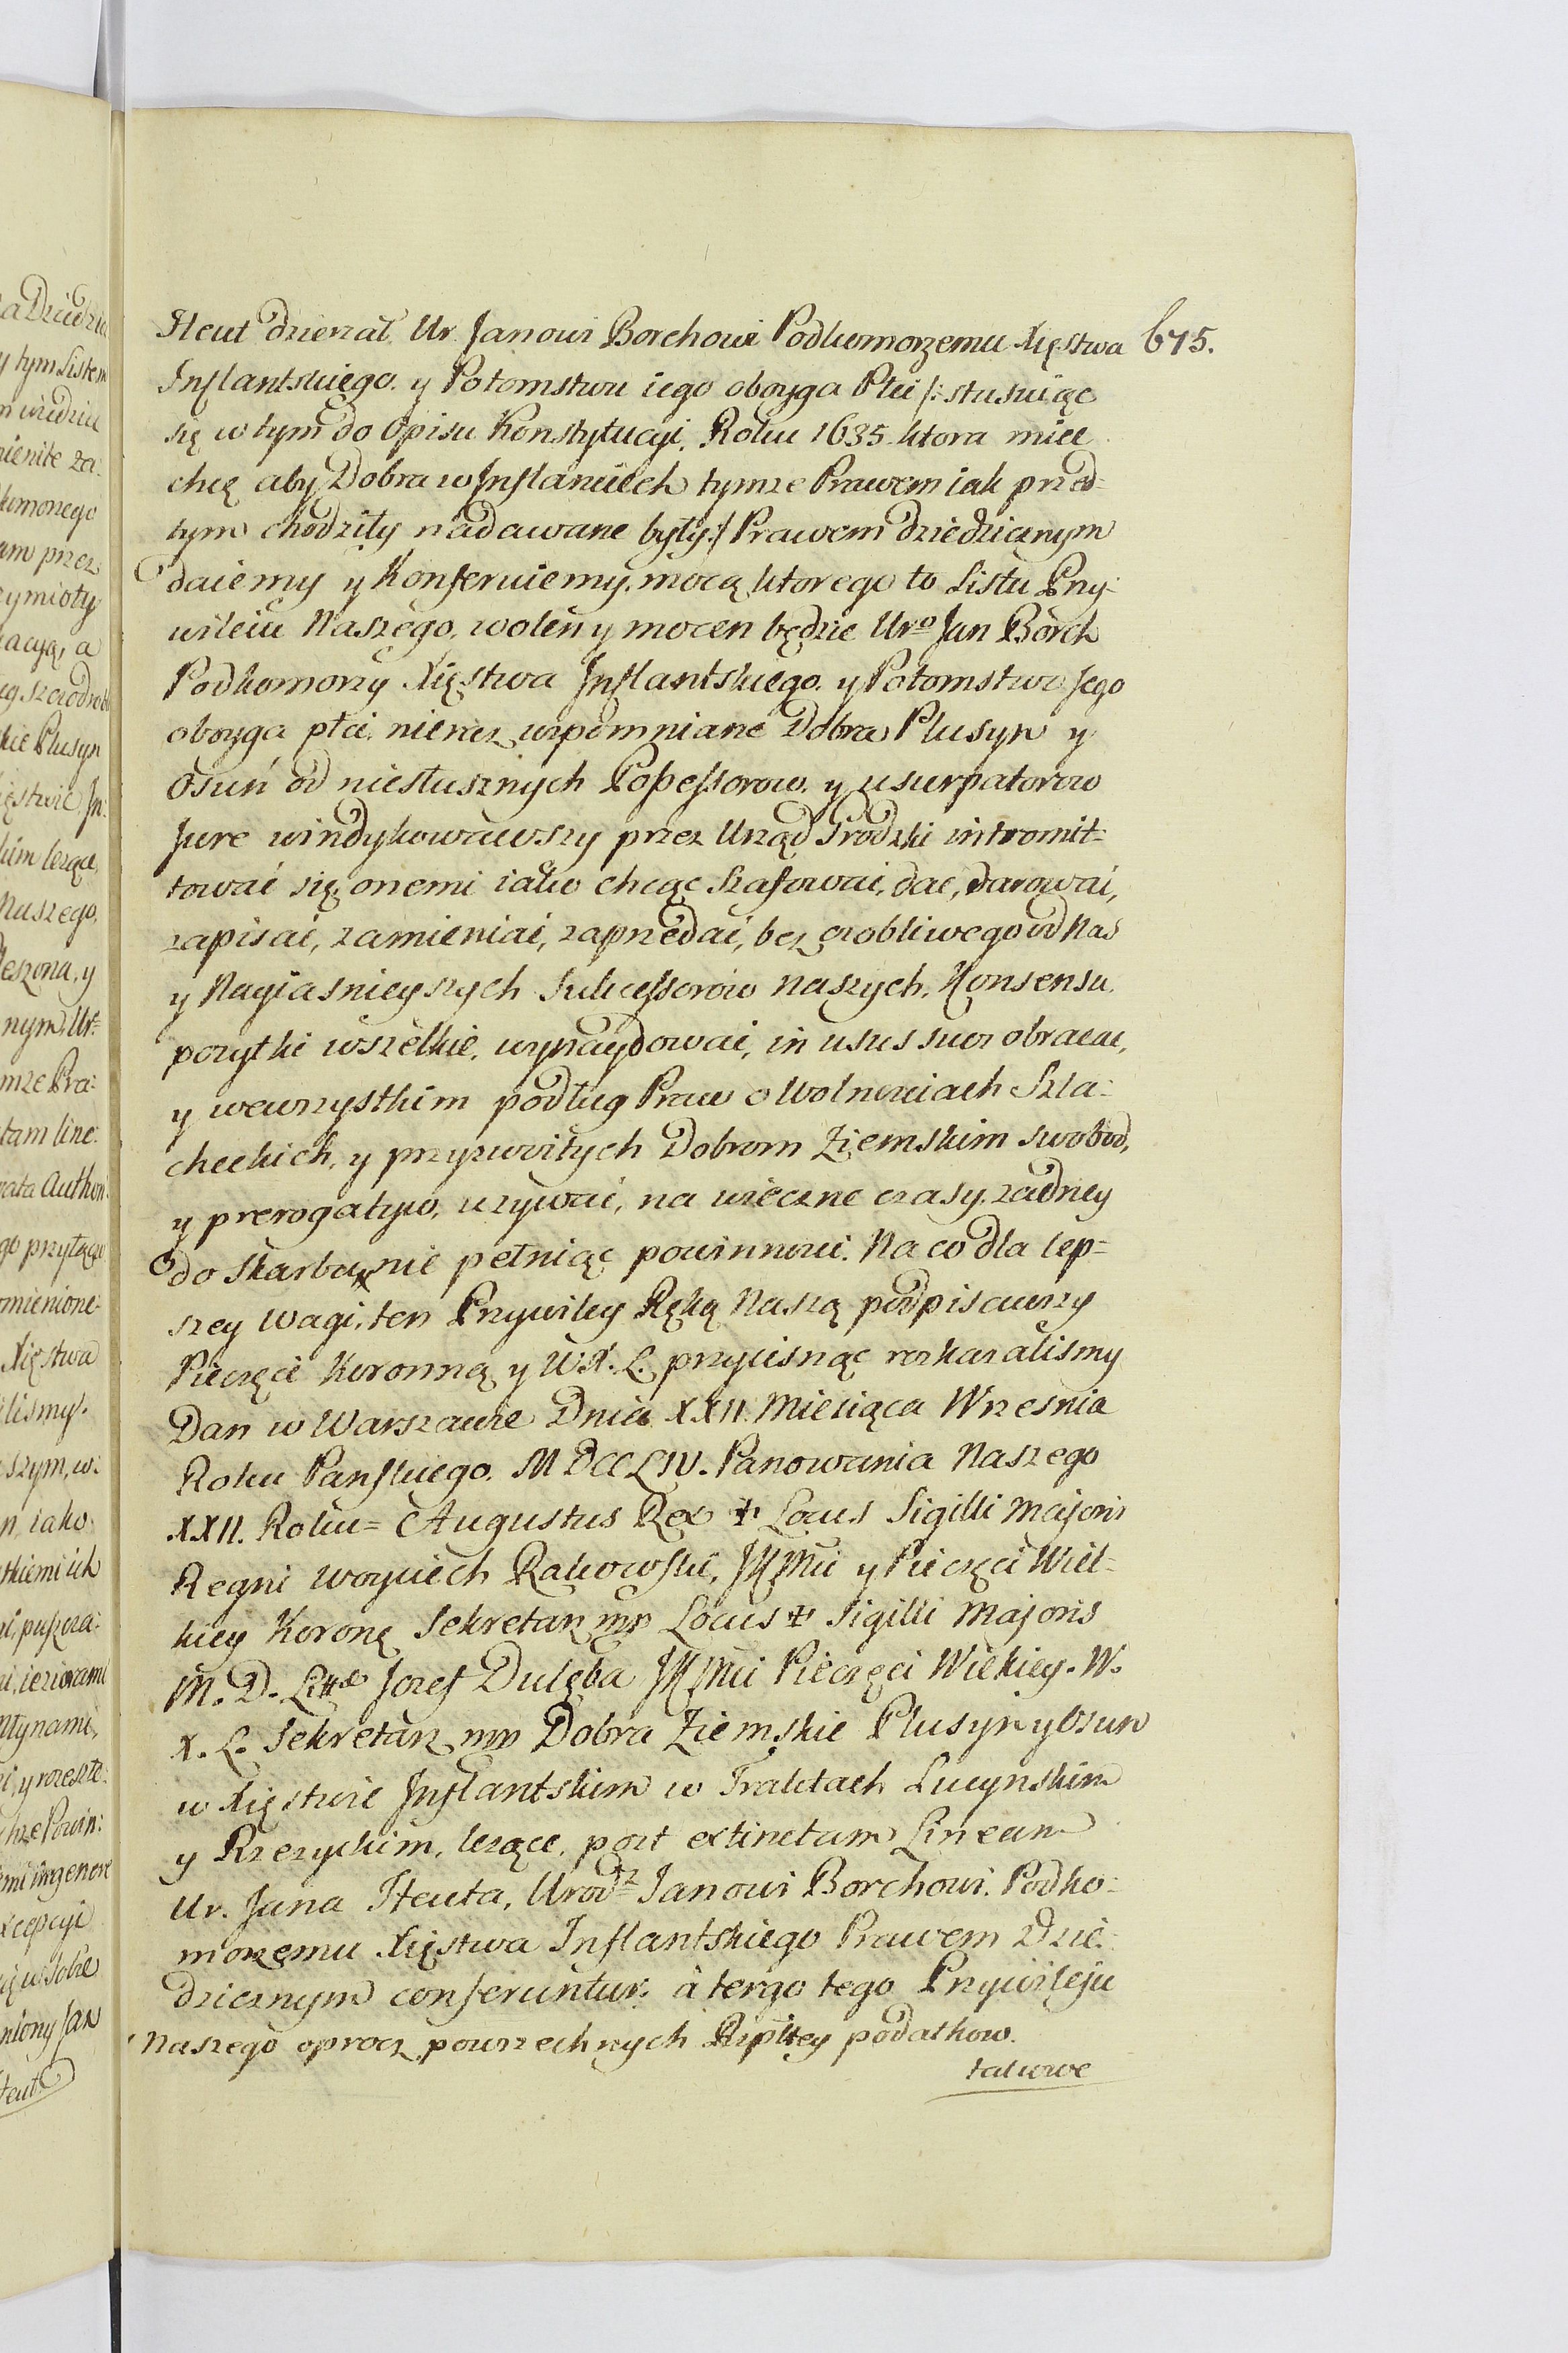 675.
Heut dzierzał Ur. Janowi Borchowi Podkomorzemu Xięstwa
Inflantskiego. y Potomstwu iego oboyga Płci /: stusuiąc
się w tym do Opisu Konstytucyi. Roku 1635. ktora miec
chcę aby Dobra w Inflanciech tymze Prawem iak przed-
tym chodziły nadawane były :/ Prawem dziedzicznym
daiemy y Konferuiemy, mocą ktorego to Listu Przy-
wileiu Naszego, wolen y mocen będzie Uro Jan Borch
Podkomorzy Xięstwa Inflantskiego. y Potomstwo Jego
oboyga płci. nieraz wspomniane Dobra Plusyn y
Osuń od niesłusznych Possessorow. y usurpatorow
Jure windykowawszy przez Urząd Grodzki intromit-
towai się onemi iako chcąc Szafowai, dac, darowai,
zapisai, zamieniai, zaprzedai, bez osobliwego od Nas
y Nayiasnieyszych Sukcessorow naszych. Konsensu.
pozytki wszelkie. wynaydowai, in usus suos obracac,
y wewszystkim podług Praw o Wolnosciach Szla-
checkich, y przyzwoitych Dobrom Ziemskim swobod,
y prerogatyw, uzywai, na wieczne czasy. zadney
do Skarbu nie pełniąc powinnosci. Na co dla lep-
szey wagi, ten Przywiley Ręką Naszą podpisawszy
Pieczęcie Koronną y W.X.L. przycisnąc rozkazalismy
Dan w Warszawie Dnia XXII. Miesiąca Wrzesnia
Roku Panskiego. MDCCLIV. Panowania Naszego
XXII. Roku = Augustus Rex ‡ Locus Sigilli Majoris
Regni Woyciech Rakowski, JKMci y Pieczęci Wiel-
kiey Koronę Sekretarz mp Locus ‡ Sigilli Majoris
M. D. Littae Jozef Dulęba JKMci Pieczęci Wielkiey. W.
X. L. Sekretarz mp Dobra Ziemskie Plusyn y Osun
w Xięstwie Inflantskim w Traktach Lucynskim
y Rzezyckim, lezące, post extinctam Lineam
Ur. Jana Heuta, Urodz Janowi Borchowi. Podko-
morzemu Xięstwa Inflantskiego Prawem Dzie-
dzicznym conferuntur. à tergo tego Przywileju
Naszego oprocz powszechnych Rzpltey podatkow.
takowe